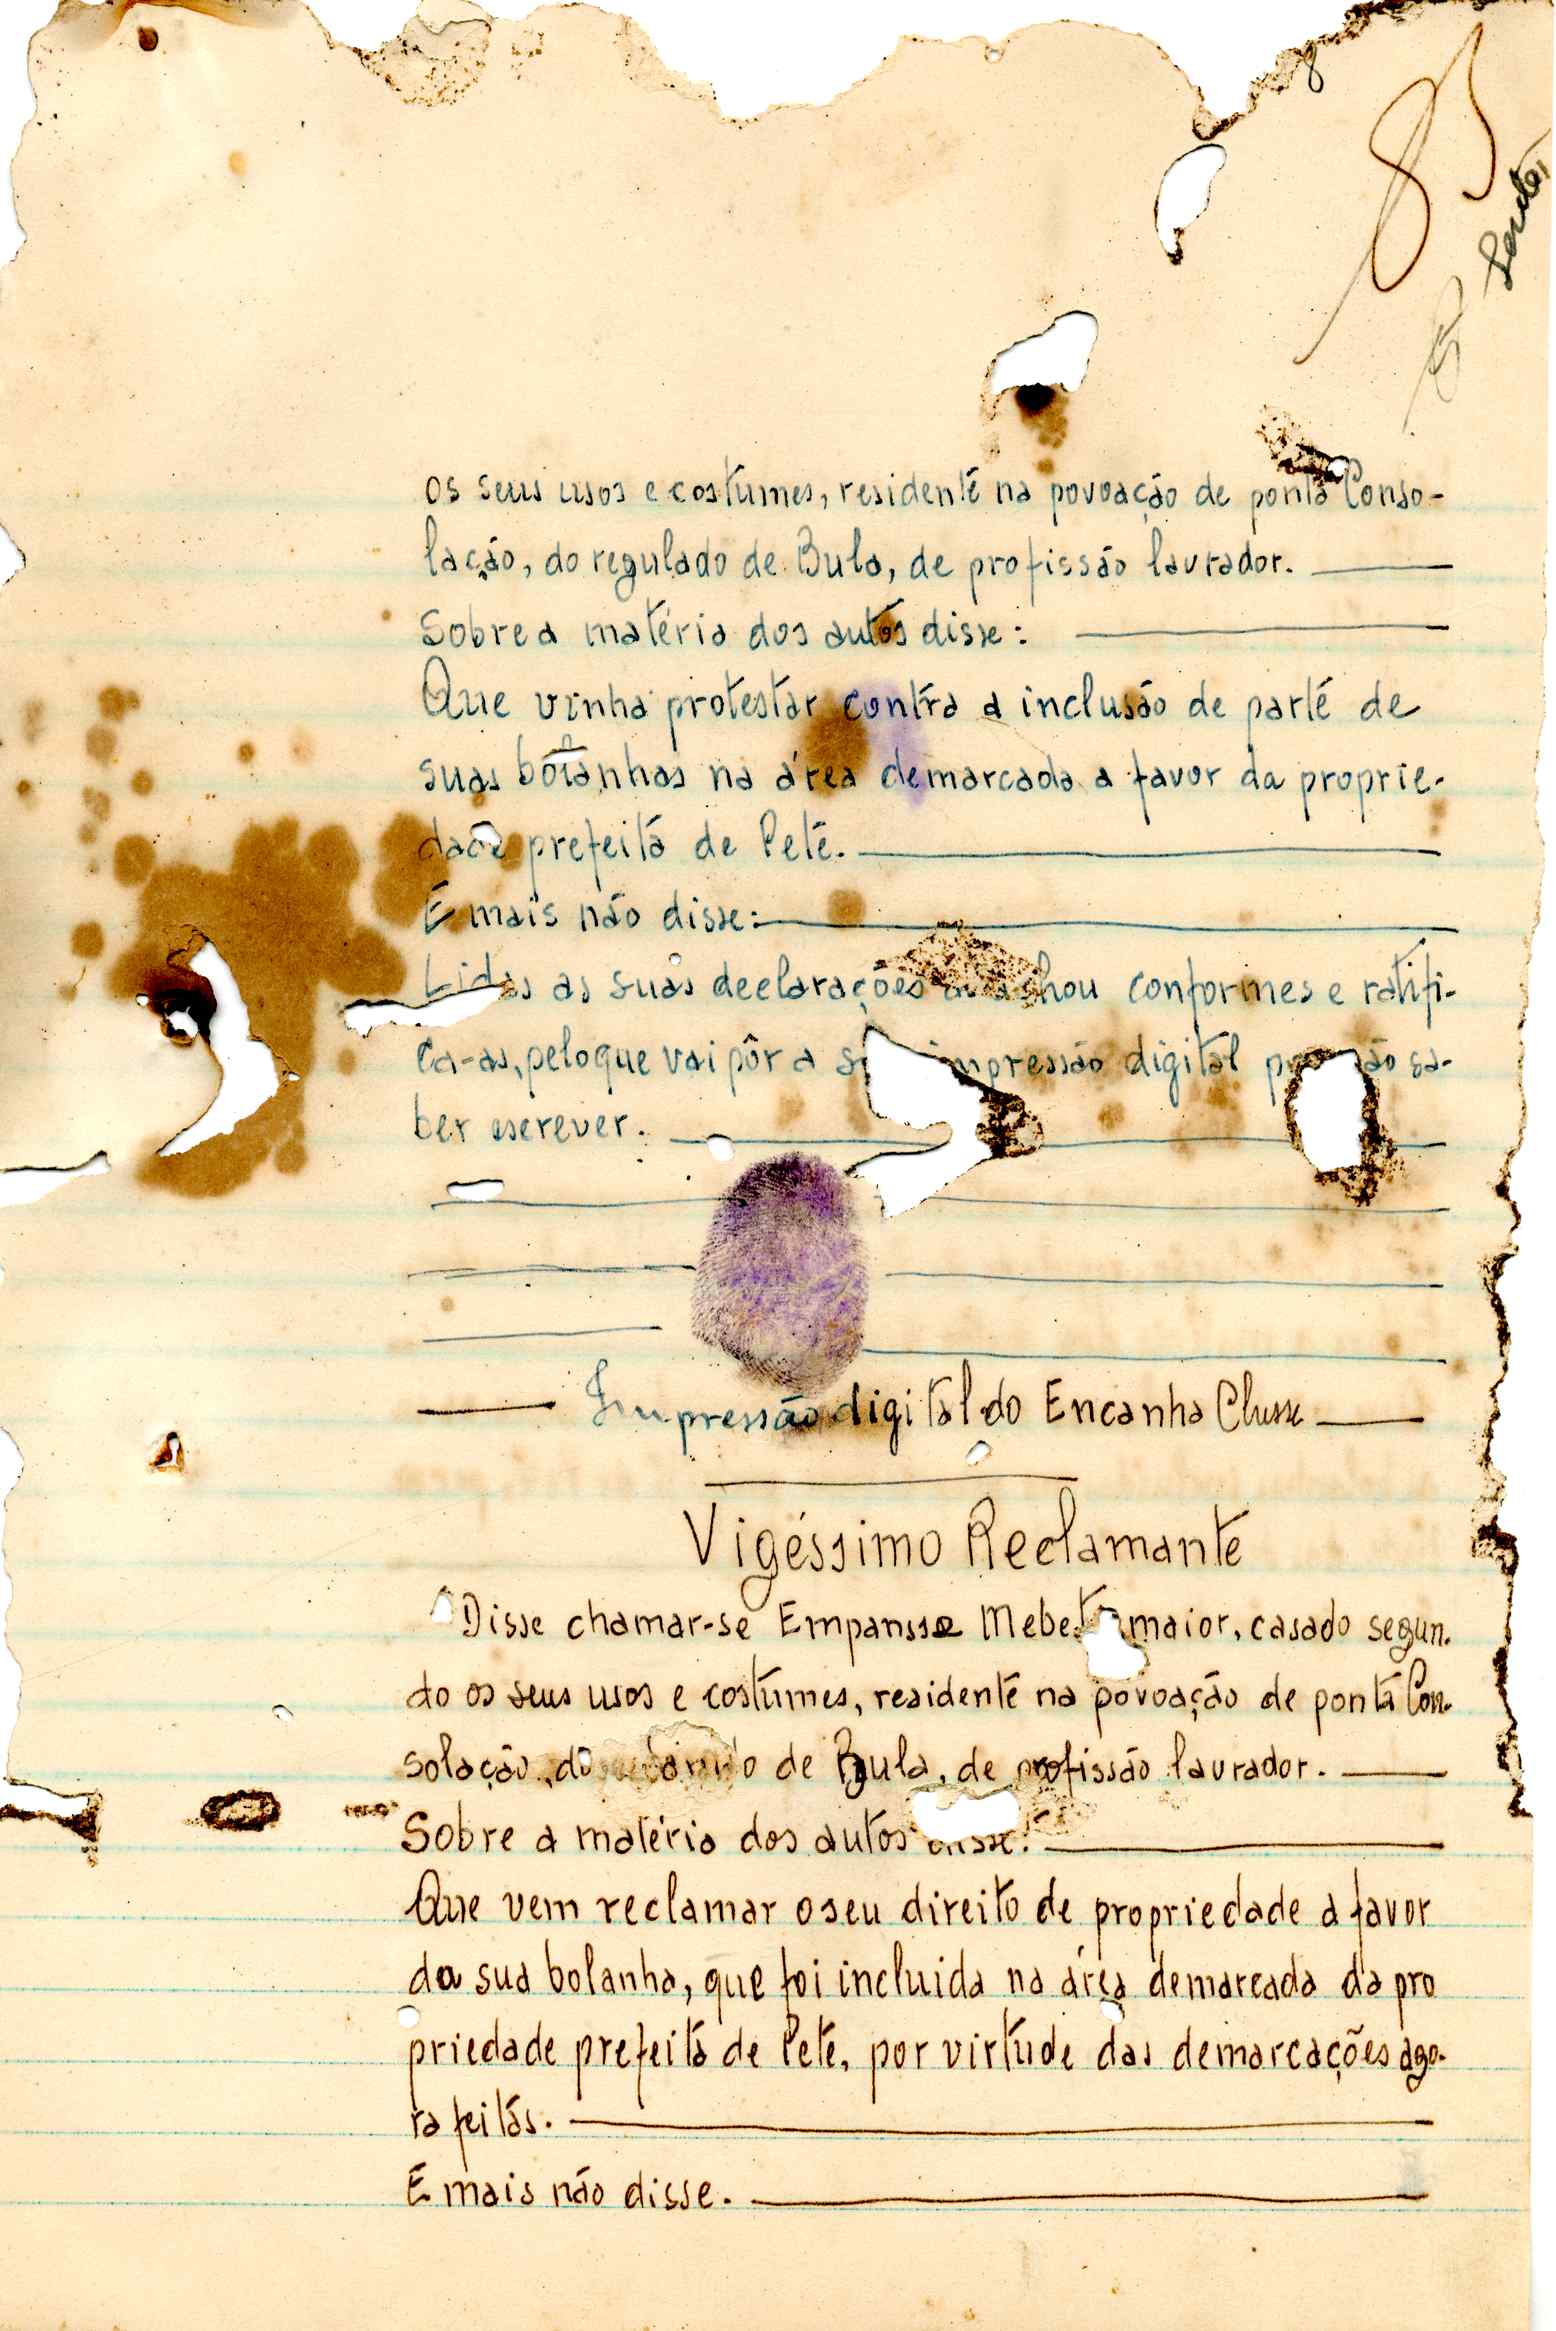 8
os seus usos e costumes, residente na povoação de ponta Conso-
lação, do regulado de Bula, de profissão lavrador.
Sobre a matéria dos autos disse:
Que vinha protestar contra a inclusão de parte de
suas bolanhas na área demarcada a favor da proprie-
dade prefeita de Pete.
E mais não disse:
Lidas as suas declarações as achou conformes e ratifi-
ca-as, pelo que vai pôr a impressão digital não sa-
ber escrever.
Impressão digital do Encanha Clusse
Vigéssimo Reclamante
Disse chamar-se Empansse maior, casado segun-
do os seus usos e costumes, residente na povoação de ponta Con-
solação, do de Bula, de profissão lavrador.
Sobre a matéria dos autos disse:
Que vem reclamar o seu direito de propriedade a favor
da sua bolanha, que foi incluida na área demarcada da pro
priedade prefeita de Pete, por virtude das demarcações ago-
ra feitas.
E mais não disse.